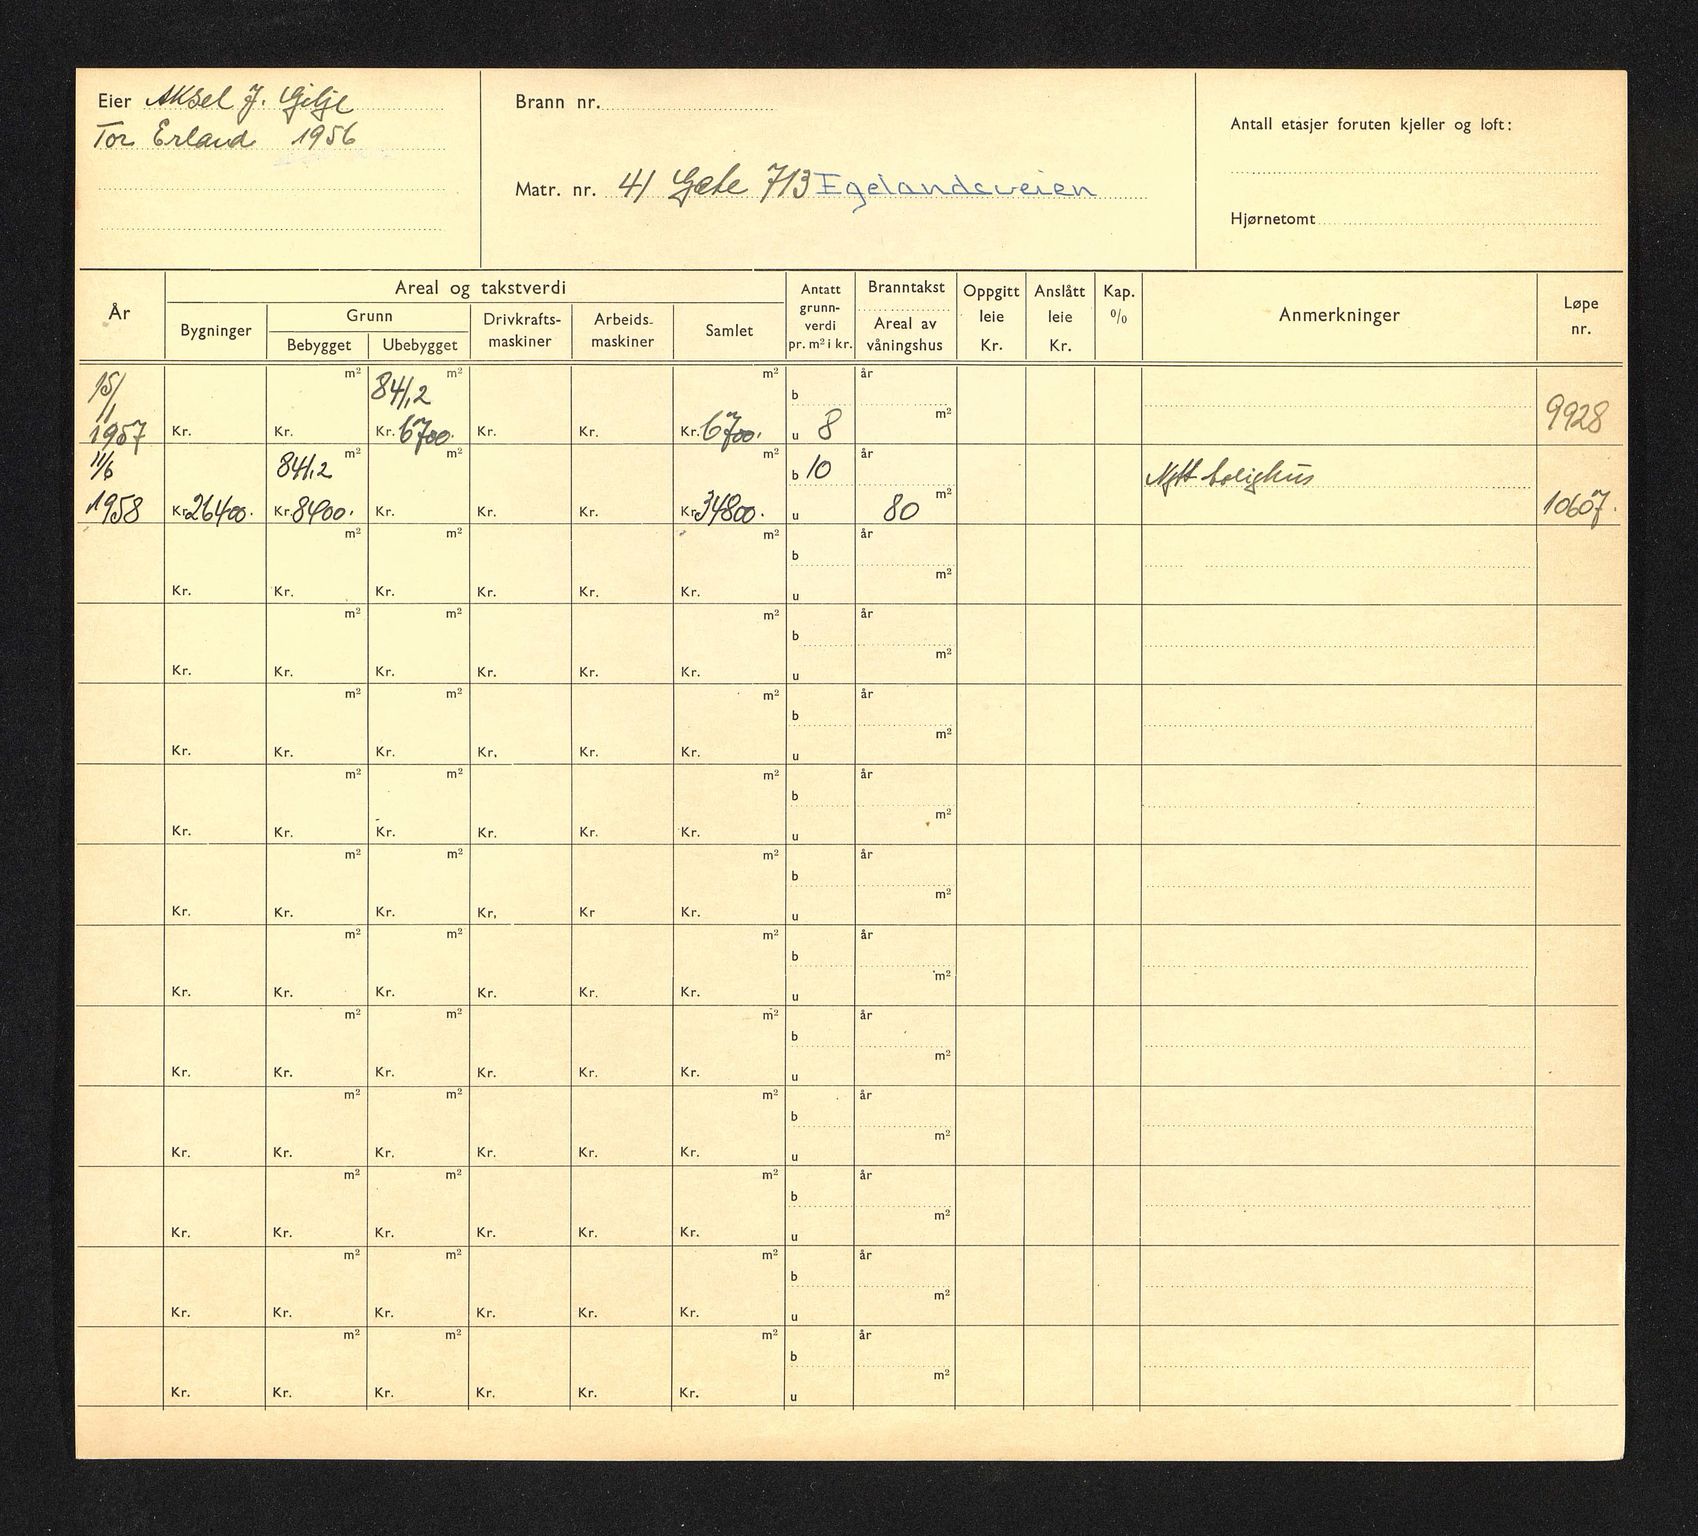 Eier Aksel J. Gilje
Tor Erland 1956
Brann nr.
Matr. nr. 41 Gate 713 Egelandsveien
Antall etasjer foruten kjeller og loft:
Hjørnetomt
År
Areal og takstverdi
Bygninger
Grunn
Bebygget
Ubebygget
Drivkrafts-
maskiner
Arbeids-
maskiner
Samlet
Antatt
grunn-
verdi
pr. m² i kr.
Branntakst
Areal av
våningshus
Oppgitt
leie
Kr.
Anslått
leie
Kr.
Kap.
%
Anmerkninger
Løpe
nr.
15/ m² 841,2 m² m² b år
11 m²
1957 Kr. Kr. Kr. 6700. Kr. Kr. Kr. 6700. u 8 9928
11/6 841,2 m² m² m² b 10 år Nytt bolighus
m²
1958 Kr. 26400. Kr. 8400. Kr. Kr. Kr. Kr. 34800. u 80 10607.
m² m² m² år
b
m²
Kr. Kr. Kr. Kr. Kr. Kr. u
m² m² m² år
b
m²
Kr. Kr. Kr. Kr. Kr. Kr. u
m² m² m² år
b
m²
Kr. Kr. Kr. Kr. Kr. Kr. u
m² m² m² år
b
m²
Kr. Kr. Kr. Kr. Kr. Kr. u
m² m² m² år
b
m²
Kr. Kr. Kr. Kr. Kr Kr. u
m² m² m² år
b
m²
Kr. Kr. Kr. Kr. Kr. Kr. u
m² m² m² år
b
m²
Kr. Kr. Kr. Kr. Kr. Kr. u
m² m² m² år
b
m²
Kr. Kr. Kr. Kr. Kr. Kr. u
m² m² m² år
b
m²
Kr. Kr. Kr. Kr. Kr. Kr. u
m² m² m² år
b
m²
Kr. Kr. Kr. Kr. Kr. Kr. u
m² m² m² år
b
m²
Kr. Kr. Kr. Kr. Kr. Kr. u